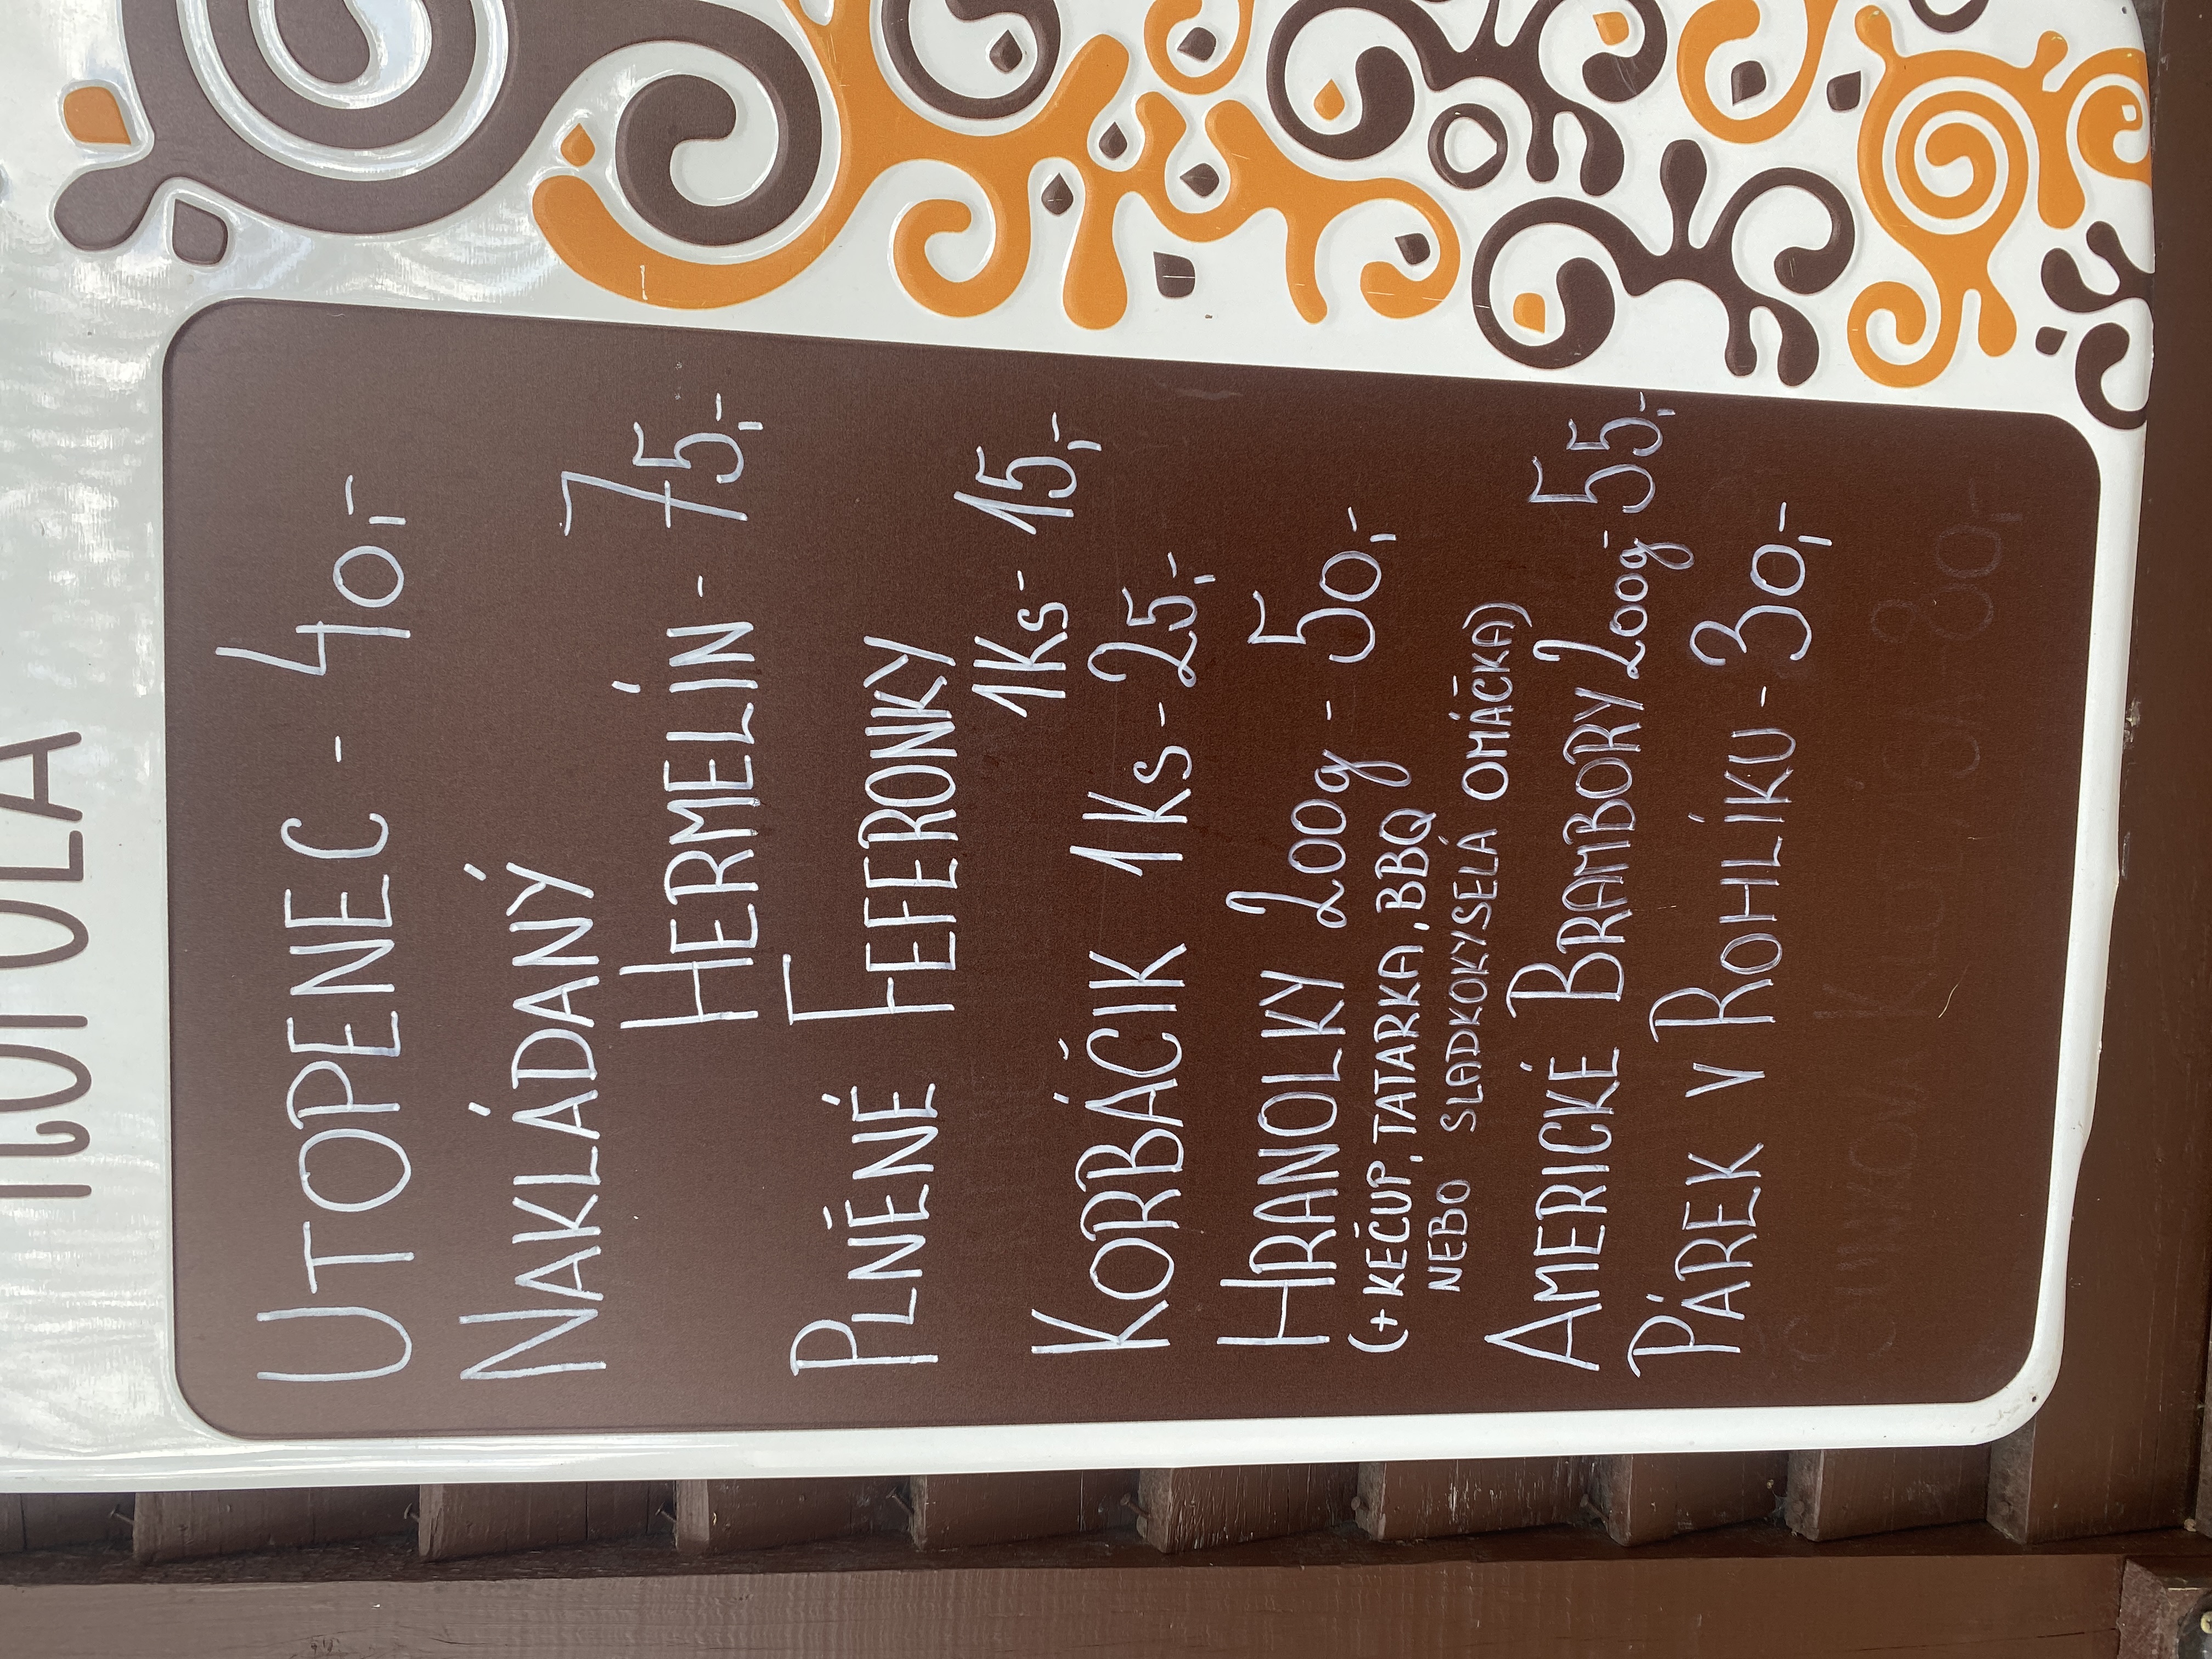 UTOPENEC - 40,-
NAKLÁDANÝ
HERMELÍN - 75,-
PLNĚNÉ FEFERONKY
1Ks - 15,-
KORBÁČIK 1Ks - 25,-
HRANOLKY 200g - 50,-
(+ KEČUP, TATARKA, BBQ
NEBO SLADKOKYSELÁ OMÁČKA)
AMERICKÉ BRAMBORY 200g - 55,-
PÁREK V ROHLÍKU - 30,-